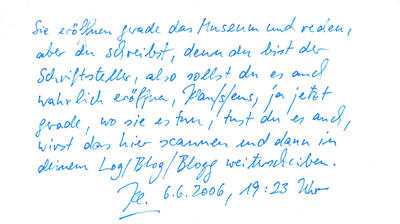 Sie eröffnen grade das Museum und reden,
aber du schreibst, denn du bist der
Schriftsteller, also sollst du es auch
wahrlich eröffnen, ja jetzt
grade, wo sie es tun, tust du es auch,
wirst das hier scannen und dann in
deinem Log/Blog/Blogg weiterschreiben.
6.6.2006, 19:23 Uhr